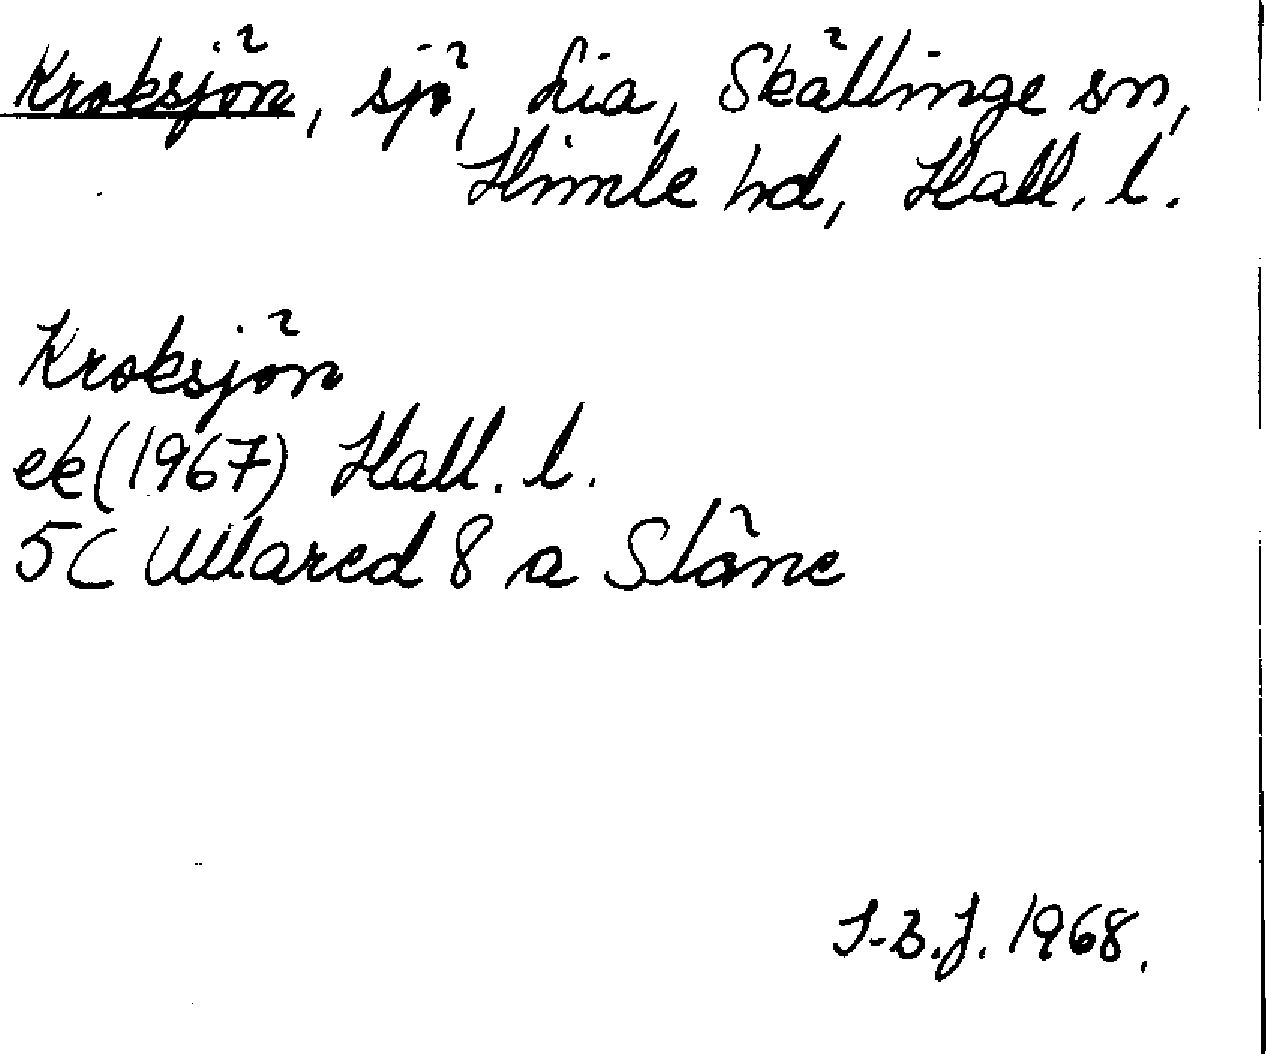 Kroksjön, sjö, Lia, Skällinge sn,
Himle hd, Hall. l.
Kroksjön
ek (1967) Hall. l.
5C Ullared 8 a Släne
I-B.J. 1968.